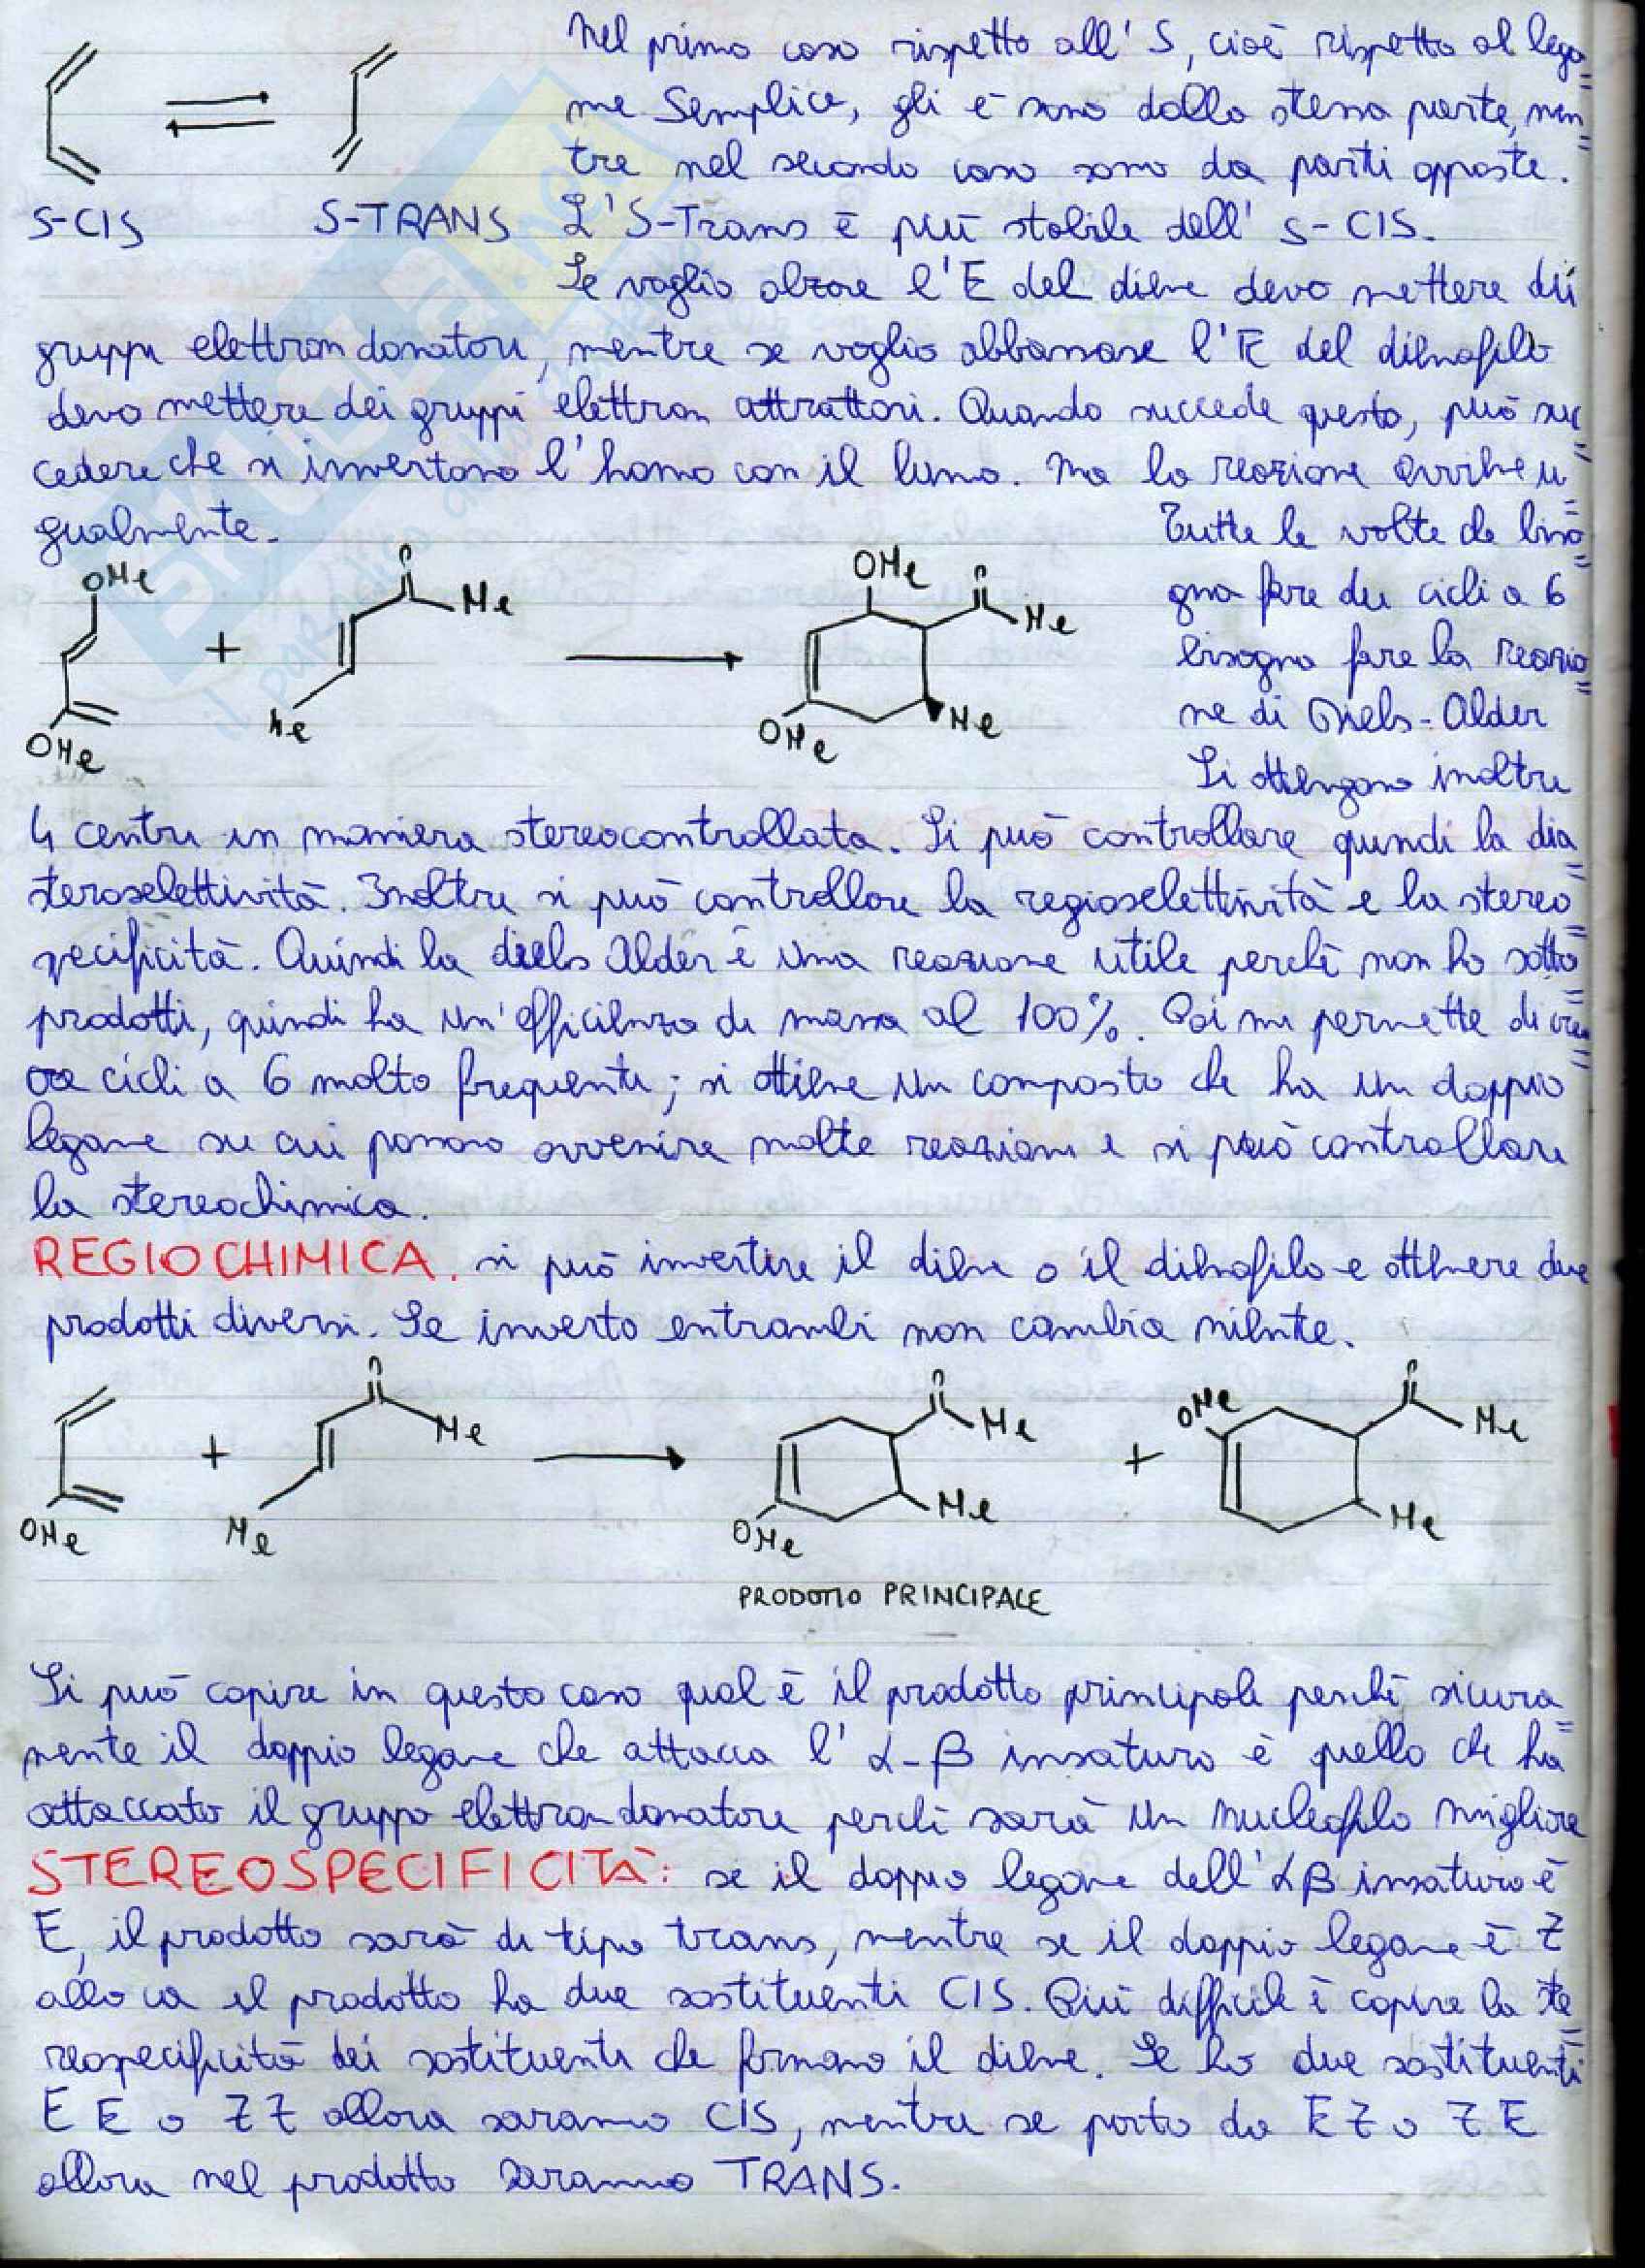 Nel primo caso rispetto all'S, cioè rispetto al lega=
me Semplice, gli e⁻ sono dalla stessa parte, men=
tre nel secondo caso sono da parti opposte.
S-CIS S-TRANS L'S-Trans è più stabile dell' S-CIS.
Se voglio alzare l'E del diene devo mettere dei
gruppi elettron donatori, mentre se voglio abbassare l'E del dienofilo
devo mettere dei gruppi elettron attrattori. Quando succede questo, può suc=
cedere che si invertano l'homo con il lumo. Ma la reazione avviene u=
gualmente.
Tutte le volte che biso=
gna fare dei cicli a 6
bisogna fare la reazio=
ne di Diels-Alder
Si ottengono inoltre
OMe
Me
+
OMe
Me
OMe
Me
OMe
Me
4 centri in maniera stereocontrollata. Si può controllare quindi la dia=
steroselettività. Inoltre si può controllare la regioselettività e la stereo=
specificità. Quindi la diels Alder è una reazione utile perchè non ho sotto=
prodotti, quindi ha un'efficienza di massa al 100%. Poi mi permette di cre=
are cicli a 6 molto frequenti; si ottiene un composto che ha un doppio
legame su cui possono avvenire molte reazioni e si può controllare
la stereochimica.
REGIOCHIMICA. si può invertire il diene o il dienofilo e ottenere due
prodotti diversi. Se inverto entrambi non cambia niente.
OMe
+
Me
Me
OMe
Me
Me
+
OMe
Me
Me
PRODOTTO PRINCIPALE
Si può capire in questo caso qual è il prodotto principale perchè sicura=
mente il doppio legame che attacca l' α-β insaturo è quello che ha
attaccato il gruppo elettron donatore perchè sarà un nucleofilo migliore
STEREOSPECIFICITÀ: se il doppio legame dell'αβ insaturo è
E, il prodotto sarà di tipo trans, mentre se il doppio legame è Z
allora il prodotto ha due sostituenti CIS. Più difficile è capire la ste=
reospecificità dei sostituenti che formano il diene. Se ho due sostituenti
E E o Z Z allora saranno CIS, mentre se parto da E Z o Z E
allora nel prodotto saranno TRANS.